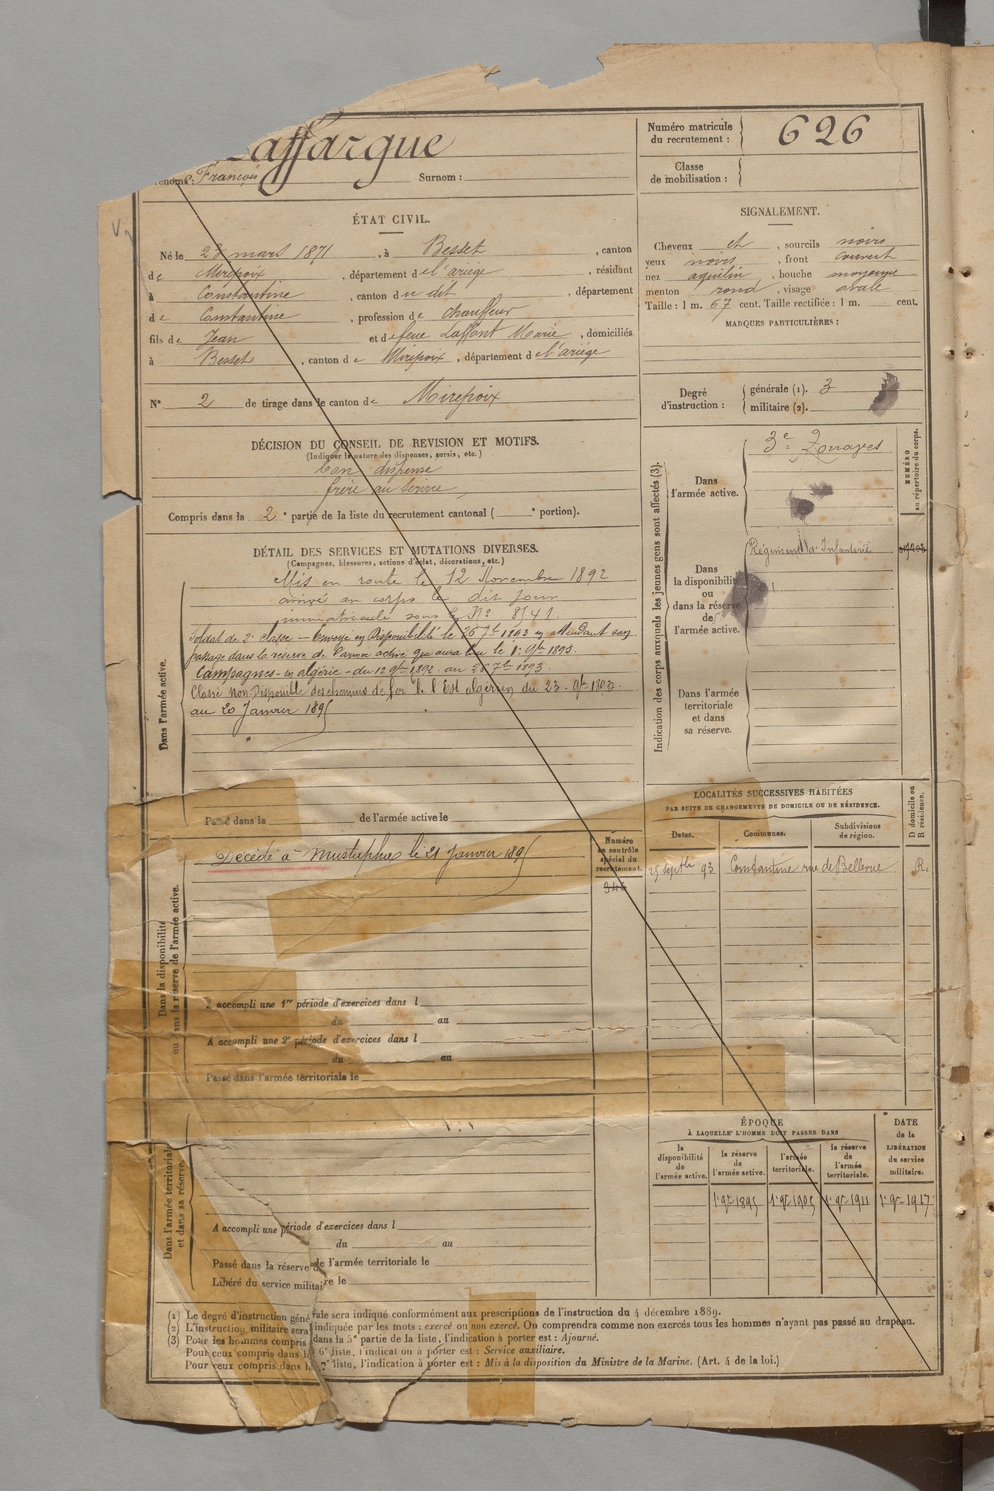 Laffargue
Prénoms : François Surnom :
Numéro matricule du recrutement : 626
Classe de mobilisation :
ÉTAT CIVIL.
Né le 28 mars 1871, à Besset, canton
de Mirepoix, département de l'ariège, résidant
à Constantine, canton du dit, département
de Constantine, profession de chauffeur
fils de Jean et de feue Laffont Marie, domiciliés
à Besset, canton de Mirepoix, département de l'ariège
N° 2 de tirage dans le canton de Mirepoix
SIGNALEMENT.
Cheveux et, sourcils noirs
yeux noirs, front couvert
nez aquilin, bouche moyenne
menton rond, visage ovale
Taille : 1 m. 67 cent. Taille rectifiée : 1 m. cent.
MARQUES PARTICULIÈRES :
Degré d'instruction : générale (1). 3
militaire (2).
DÉCISION DU CONSEIL DE REVISION ET MOTIFS.
(Indiquer la nature des dispenses, sursis, etc.)
Bon dispensé
frère au service
Compris dans la 2e partie de la liste du recrutement cantonal ( e portion).
DÉTAIL DES SERVICES ET MUTATIONS DIVERSES.
(Campagnes, blessures, actions d'éclat, décorations, etc.)
Dans l'armée active.
Mis en route le 12 Novembre 1892
arrivé au corps le dit jour
immatriculé sous le N° 8741
Soldat de 2e classe — Envoyé en Disponibilité le 26 7bre 1893 en attendant son
passage dans la réserve de l'armée active qui aura lieu le 1er 9bre 1895.
Campagnes - en algérie - du 12 9bre 1892 au 26 7bre 1893.
Classé Non Disponible des chemins de fer de l'Est algérien du 23 9bre 1893
au 20 Janvier 1895
Passé dans la de l'armée active le
Indication des corps auxquels les jeunes gens sont affectés (3).
NUMÉRO au répertoire du corps.
Dans l'armée active.
3e Zouaves
Dans la disponibilité ou dans la réserve de l'armée active.
Régiment d'Infanterie
Dans l'armée territoriale et dans sa réserve.
LOCALITÉS SUCCESSIVES HABITÉES
PAR SUITE DE CHANGEMENTS DE DOMICILE OU DE RÉSIDENCE.
D domicile ou R résidence.
Dates. Communes. Subdivisions de région.
25 septbre 93 Constantine rue de Bellevue R.
Dans la disponibilité ou dans la réserve de l'armée active.
Numéro au contrôle spécial du recrutement.
344
Décédé à Mustapha le 21 Janvier 1895
A accompli une 1re période d'exercices dans l
du au
A accompli une 2e période d'exercices dans l
du au
Passé dans l'armée territoriale le
ÉPOQUE
À LAQUELLE L'HOMME DOIT PASSER DANS
DATE de la LIBÉRATION du service militaire.
la disponibilité de l'armée active.
la réserve de l'armée active.
l'armée territoriale.
la réserve de l'armée territoriale.
1er 9bre 1895 1er 9bre 1905 1er 9bre 1911 1er 9bre 1917
Dans l'armée territoriale et dans sa réserve.
A accompli une période d'exercices dans l
du au
Passé dans la réserve de l'armée territoriale le
Libéré du service militaire le
(1) Le degré d'instruction générale sera indiqué conformément aux prescriptions de l'instruction du 4 décembre 1889.
(2) L'instruction militaire sera indiquée par les mots : exercé ou non exercé. On comprendra comme non exercés tous les hommes n'ayant pas passé au drapeau.
(3) Pour les hommes compris dans la 5e partie de la liste, l'indication à porter est : Ajourné.
Pour ceux compris dans la 6e liste, l'indication à porter est : Service auxiliaire.
Pour ceux compris dans la 7e liste, l'indication à porter est : Mis à la disposition du Ministre de la Marine. (Art. 4 de la loi.)